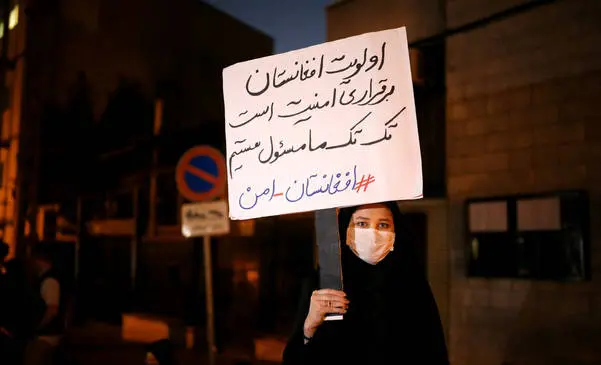 اولویت افغانستان
برقراری امنیت است
تک تک ما مسئول هستیم
#افغانستان_امن